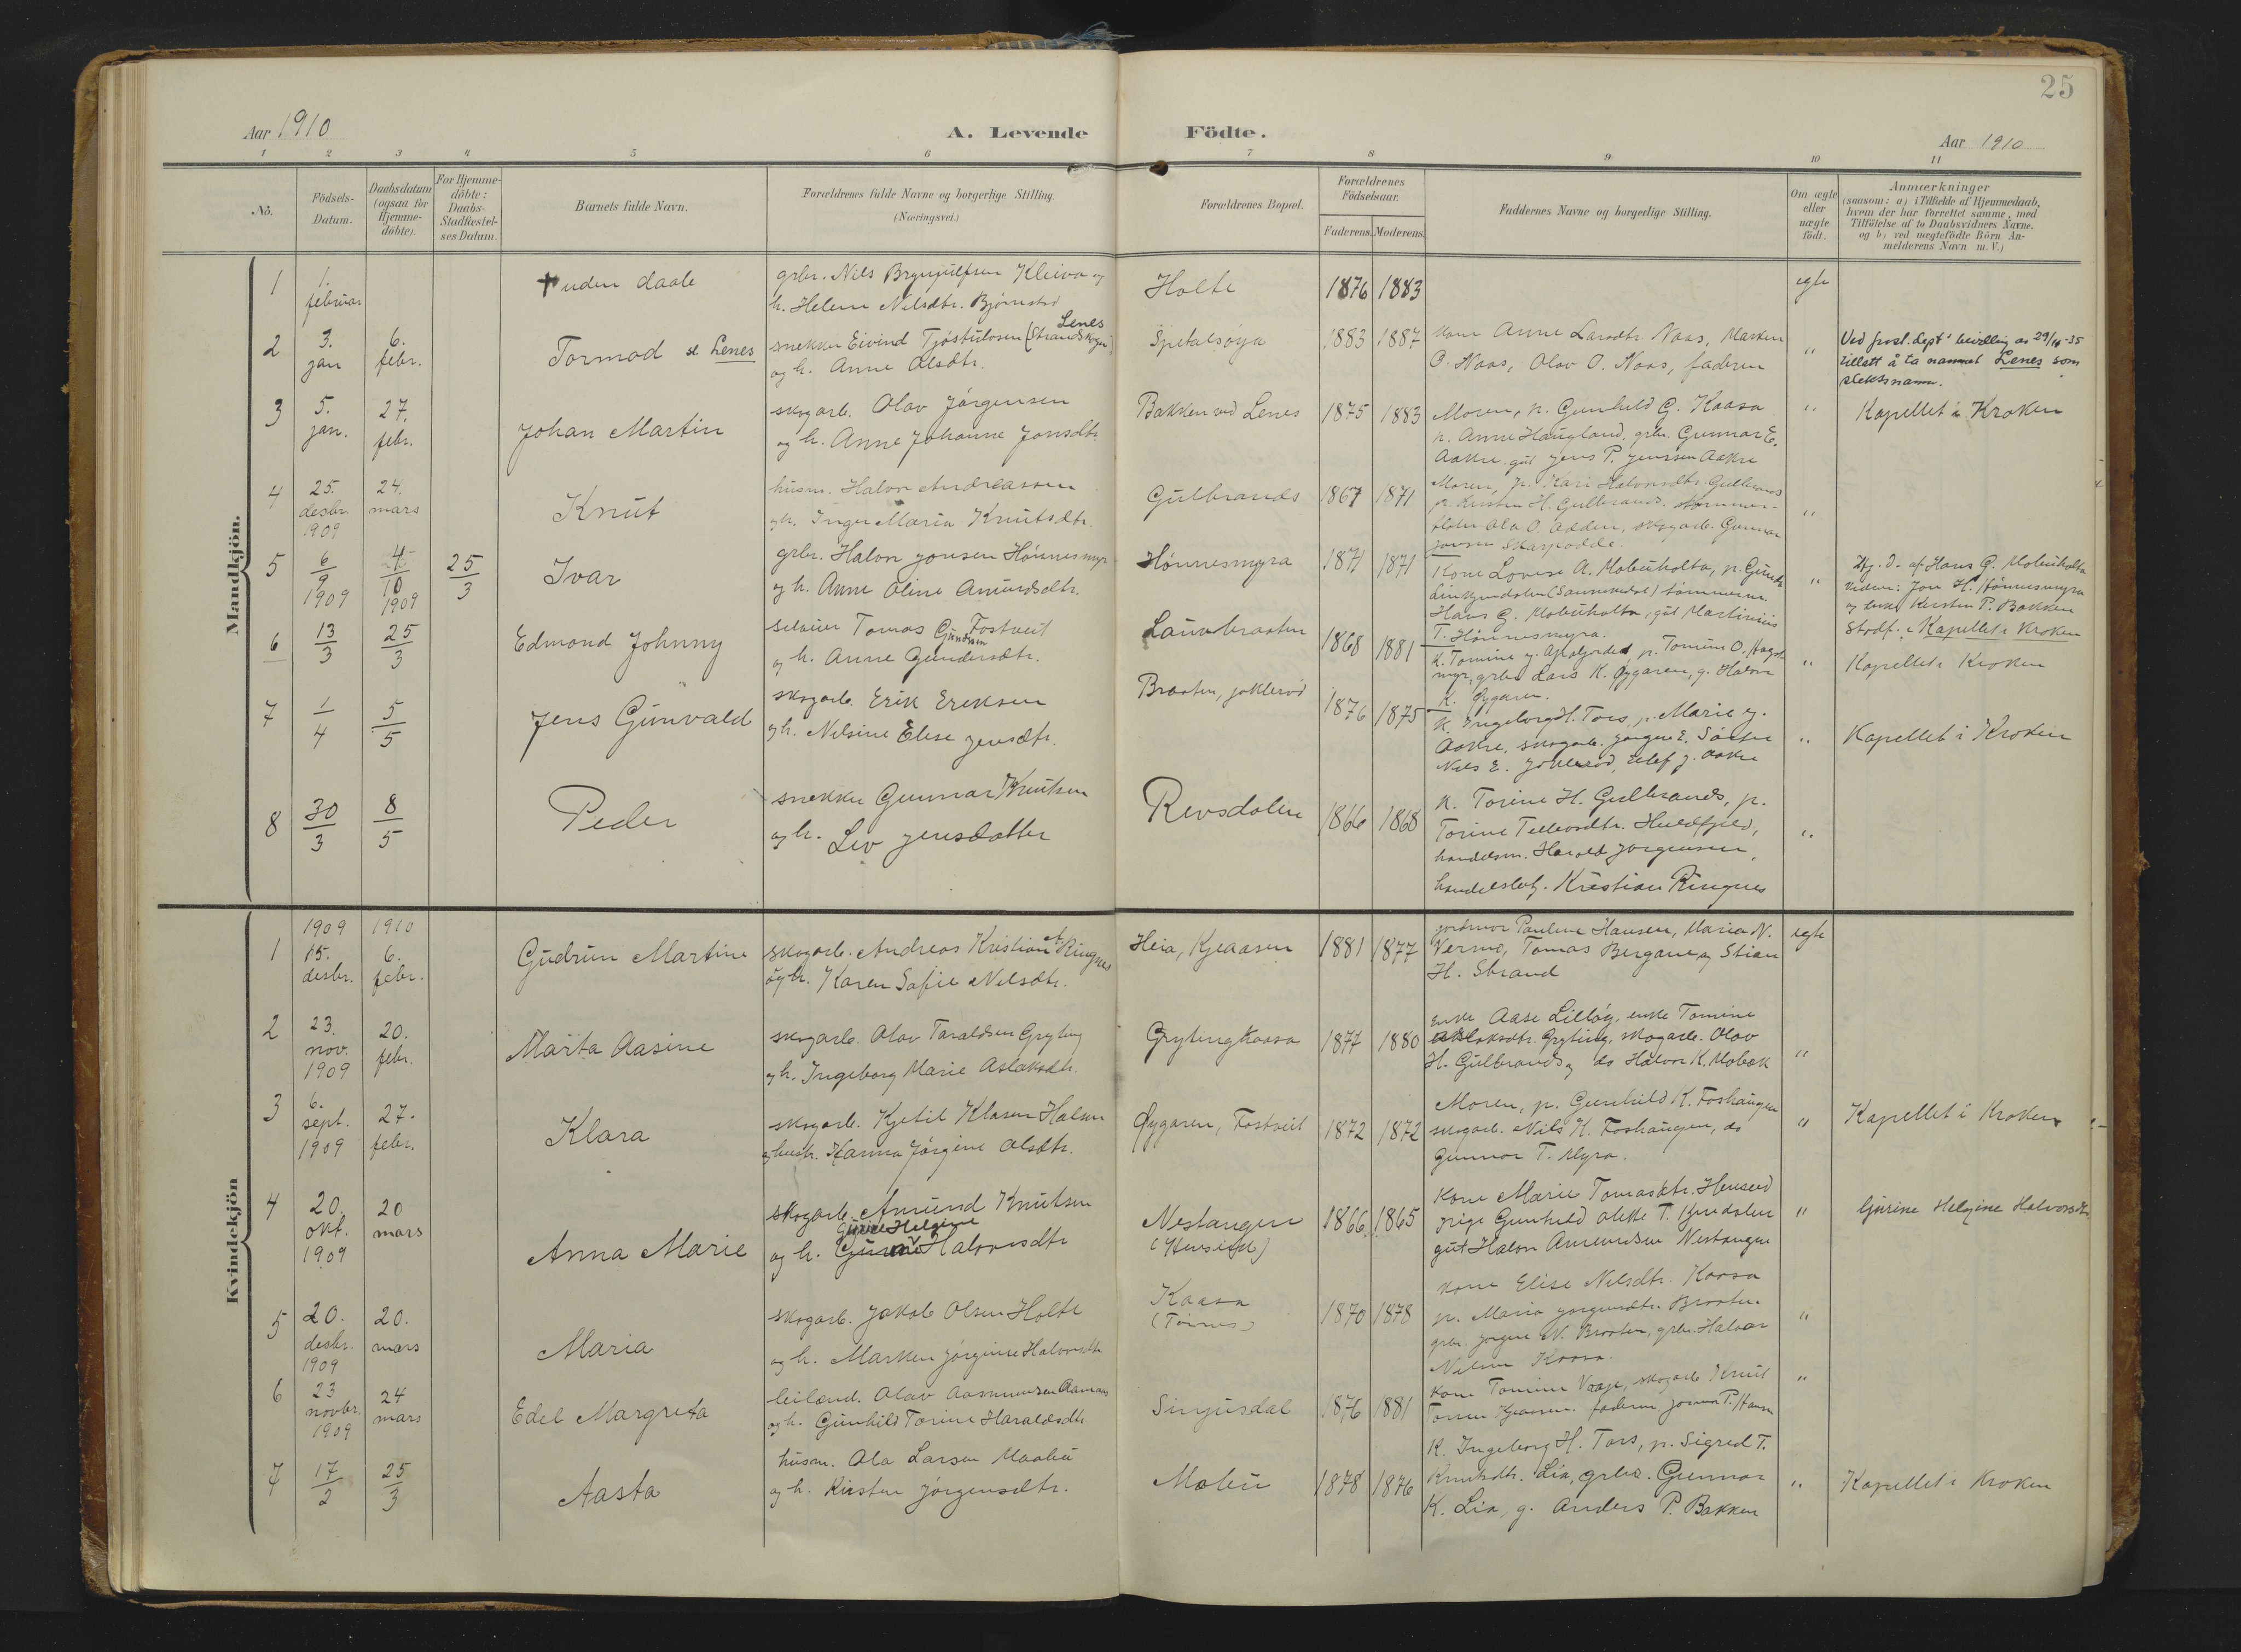 25
Aar 1910
A. Levende Födte.
Aar 1910
1 2 3 4 5 6 7 8 9 10 11
No.
Födsels-
Datum.
Daabsdatum
(ogsaa for
Hjemme-
döbte).
For Hjemme-
döbte:
Daabs-
Stadfæstel-
ses Datum.
Barnets fulde Navn.
Forældrenes fulde Navne og borgerlige Stilling.
(Næringsvei.)
Forældrenes Bopæl.
Forældrenes
Födselsaar.
Faderens. Moderens.
Faddernes Navne og borgerlige Stilling.
Om ægte
eller
uægte
födt.
Anmærkninger
(saasom: a) i Tilfælde af Hjemmedaab,
hvem der har forrettet samme, med
Tilföielse af to Daabsvidners Navne.
og b) ved uægtefödte Börn An-
melderens Navn m. V.)
Mandkjön.
1
1.
februar
uden daab
grbr. Nils Brynjulfsen Kleiva og
h. Helene Nilsdtr. Bjørnstad
Holte
1876 1883
egte
2
3.
jan
6.
febr.
Tormod sl. Lenes
Lenes
snekker Eivind Tjöstulvsen (Strandskogen)
og h. Anne Olsdtr.
Spitalsöya
1883 1887
kone Anne Larsdtr. Naas, Marken
O. Naas, Olav O. Naas, faderen
"
Ved just. dept's bevilling av 29/10-35
tillatt å ta namnet Lenes som
slektsnamn.
3
5.
jan.
27.
febr.
Johan Martin
skogarb. Olav Jörgensen
og h. Anne Johanne Jonsdtr.
Bakken ved Lenes
1875 1883
Moren, p. Gunhild G. Kaasa
p. Anne Haugland, grbr. Gunnar E.
Aakre gut Jens P. Jenssen Aakre
"
Kapellet i Kroken
4
25.
desbr.
1909
24.
mars
Knut
husm. Halvor Andreassen
og h. Inger Maria Knutsdtr.
Gulbrands
1867 1871
Moren, p. Kari Halvorsdtr. Gulbrands
p. Kirsten H. Gulbrands, tömmer-
fløter Ola O. Odden, skogarb. Gunnar
Jonsen Skarpodde.
"
5
6/9
1909
4/10
1909
25/3
Ivar
grbr. Halvor Jonsen Hönnesmyr
og h. Anne Oline Amundsdtr.
Hönnesmyra
1871 1871
Kone Lovise A. Mobuholta, p. Gunda
(Sannikedal) tömmerm.
Hans G. Mobuholta, gut Martinius
T. Hönnesmyra.
"
Hj. d. af Hans G. Mobuholta
Vidner: Jon H. Hönnesmyra
og enke Kirsten P. Bakken
Stadf. i Kapellet i Kroken
6
13/3
25/3
Edmond Johnny
selveier Tomas Gundersen Fostveit
og h. Anne Gundersdtr.
Lauvbraaten
1868 1881
K. Tomine, p. Tomine O.
myr, grbr. Lars K. Øygaren, g. Halvor
K. Øygaren.
"
Kapellet i Kroken
7
1/4
5/5
Jens Gunvald
skogarb. Erik Eriksen
og h. Nilsine Elise Jensdtr.
Braaten, Jokleröd
1876 1875
K. Ingeborg H. Tors, p. Marie J.
Aakre, skogarb. Jörgen E.
Nils E. Jokleröd, Elef J. Aakre
"
Kapellet i Kroken
8
30/3
8/5
Peder
snekker Gunnar Knutsen
og h. Liv Jensdatter
Revsdalen
1866 1868
K. Torine H. Gulbrands, p.
Torine Tellevsdtr. Huldfjeld,
handelsm. Harald Jörgensen,
handelsbetj. Kristian Ringnes
"
Kvindekjön
1
1909
15.
desbr.
1910
6.
febr.
Gudrun Martine
skogarb. Andreas Kristian A. Ringnes
og h. Karen Sofie Nilsdtr.
Heia, Kjeaasen
1881 1877
jordmor Pauline Hansen, Maria N.
Vermo, Tomas Bergane og Stian
H. Strand
egte
2
23.
nov.
1909
20.
febr.
Marta Aasine
skogarb. Olav Taraldsen Gryting
og h. Ingeborg Marie Aslaksdtr.
Grytingkaasa
1877 1880
enke Aase Lilløy, enke Tomine
Aslaksdtr. Gryting, skogarb. Olav
H. Gulbrands og do Halvor K. Mobæk
"
3
6.
sept.
1909
27.
febr.
Klara
skogarb. Kjetil Klasen Halsen
og hustr. Hanna Jörgine Olsdtr.
Øygaren, Fostveit
1872 1872
Moren, p. Gunhild K. Foshaugen
skogarb. Nils K. Foshaugen, do
Gunnar T. Myra.
"
Kapellet i Kroken
4
20.
okt.
1909
20
mars
Anna Marie
skogarb. Amund Knutsen
Gjurine Helgine
og h. Halvorsdtr
Nestangen
(Henseid)
1866 1865
Kone Marie Tomasdtr. Henseid
pige Gunhild Alette T. Kjendalen
gut Halvor Amundsen Nestangen
"
Gjurine Helgine Halvorsdtr.
5
20.
desbr.
1909
20.
mars
Maria
skogarb. Jakob Olsen Holte
og h. Marken Jörgine Halvorsdtr
Kaasa
(Törnes)
1870 1878
kone Elise Nilsdtr. Kaasa
p. Maria Jörgensdtr. Braaten
grbr. Jörgen N. Braaten, grbr. Halvor
Nilsen Kaasa.
"
6
23
novbr.
1909
24
mars
Edel Margreta
leilænd. Olav Aasmundsen Aamaas
og h. Gunhild Torine Haraldsdtr.
Singusdal
1876 1881
Kone Tomine Vaaje, skogarb. Knut
Tomas Kjeaasen. faderen, Jörund P. Hansen
"
7
17/2
25/3
Aasta
husm. Ola Larsen Maabu
og h. Kirsten Jörgensdtr.
Mobu
1878 1876
K. Ingeborg H. Tors, p. Sigred T.
Knutsdtr. Lia, grbr. Gunnar
K. Lia, g. Anders P. Bakken
"
Kapellet i Kroken